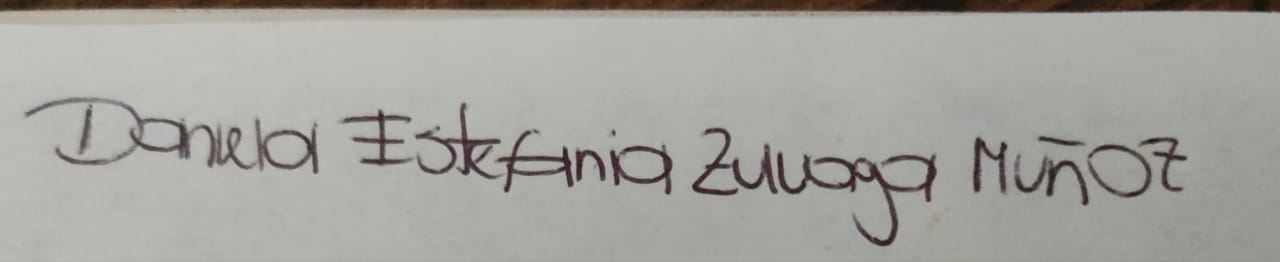 Daniela Estefania Zuluaga Muñoz